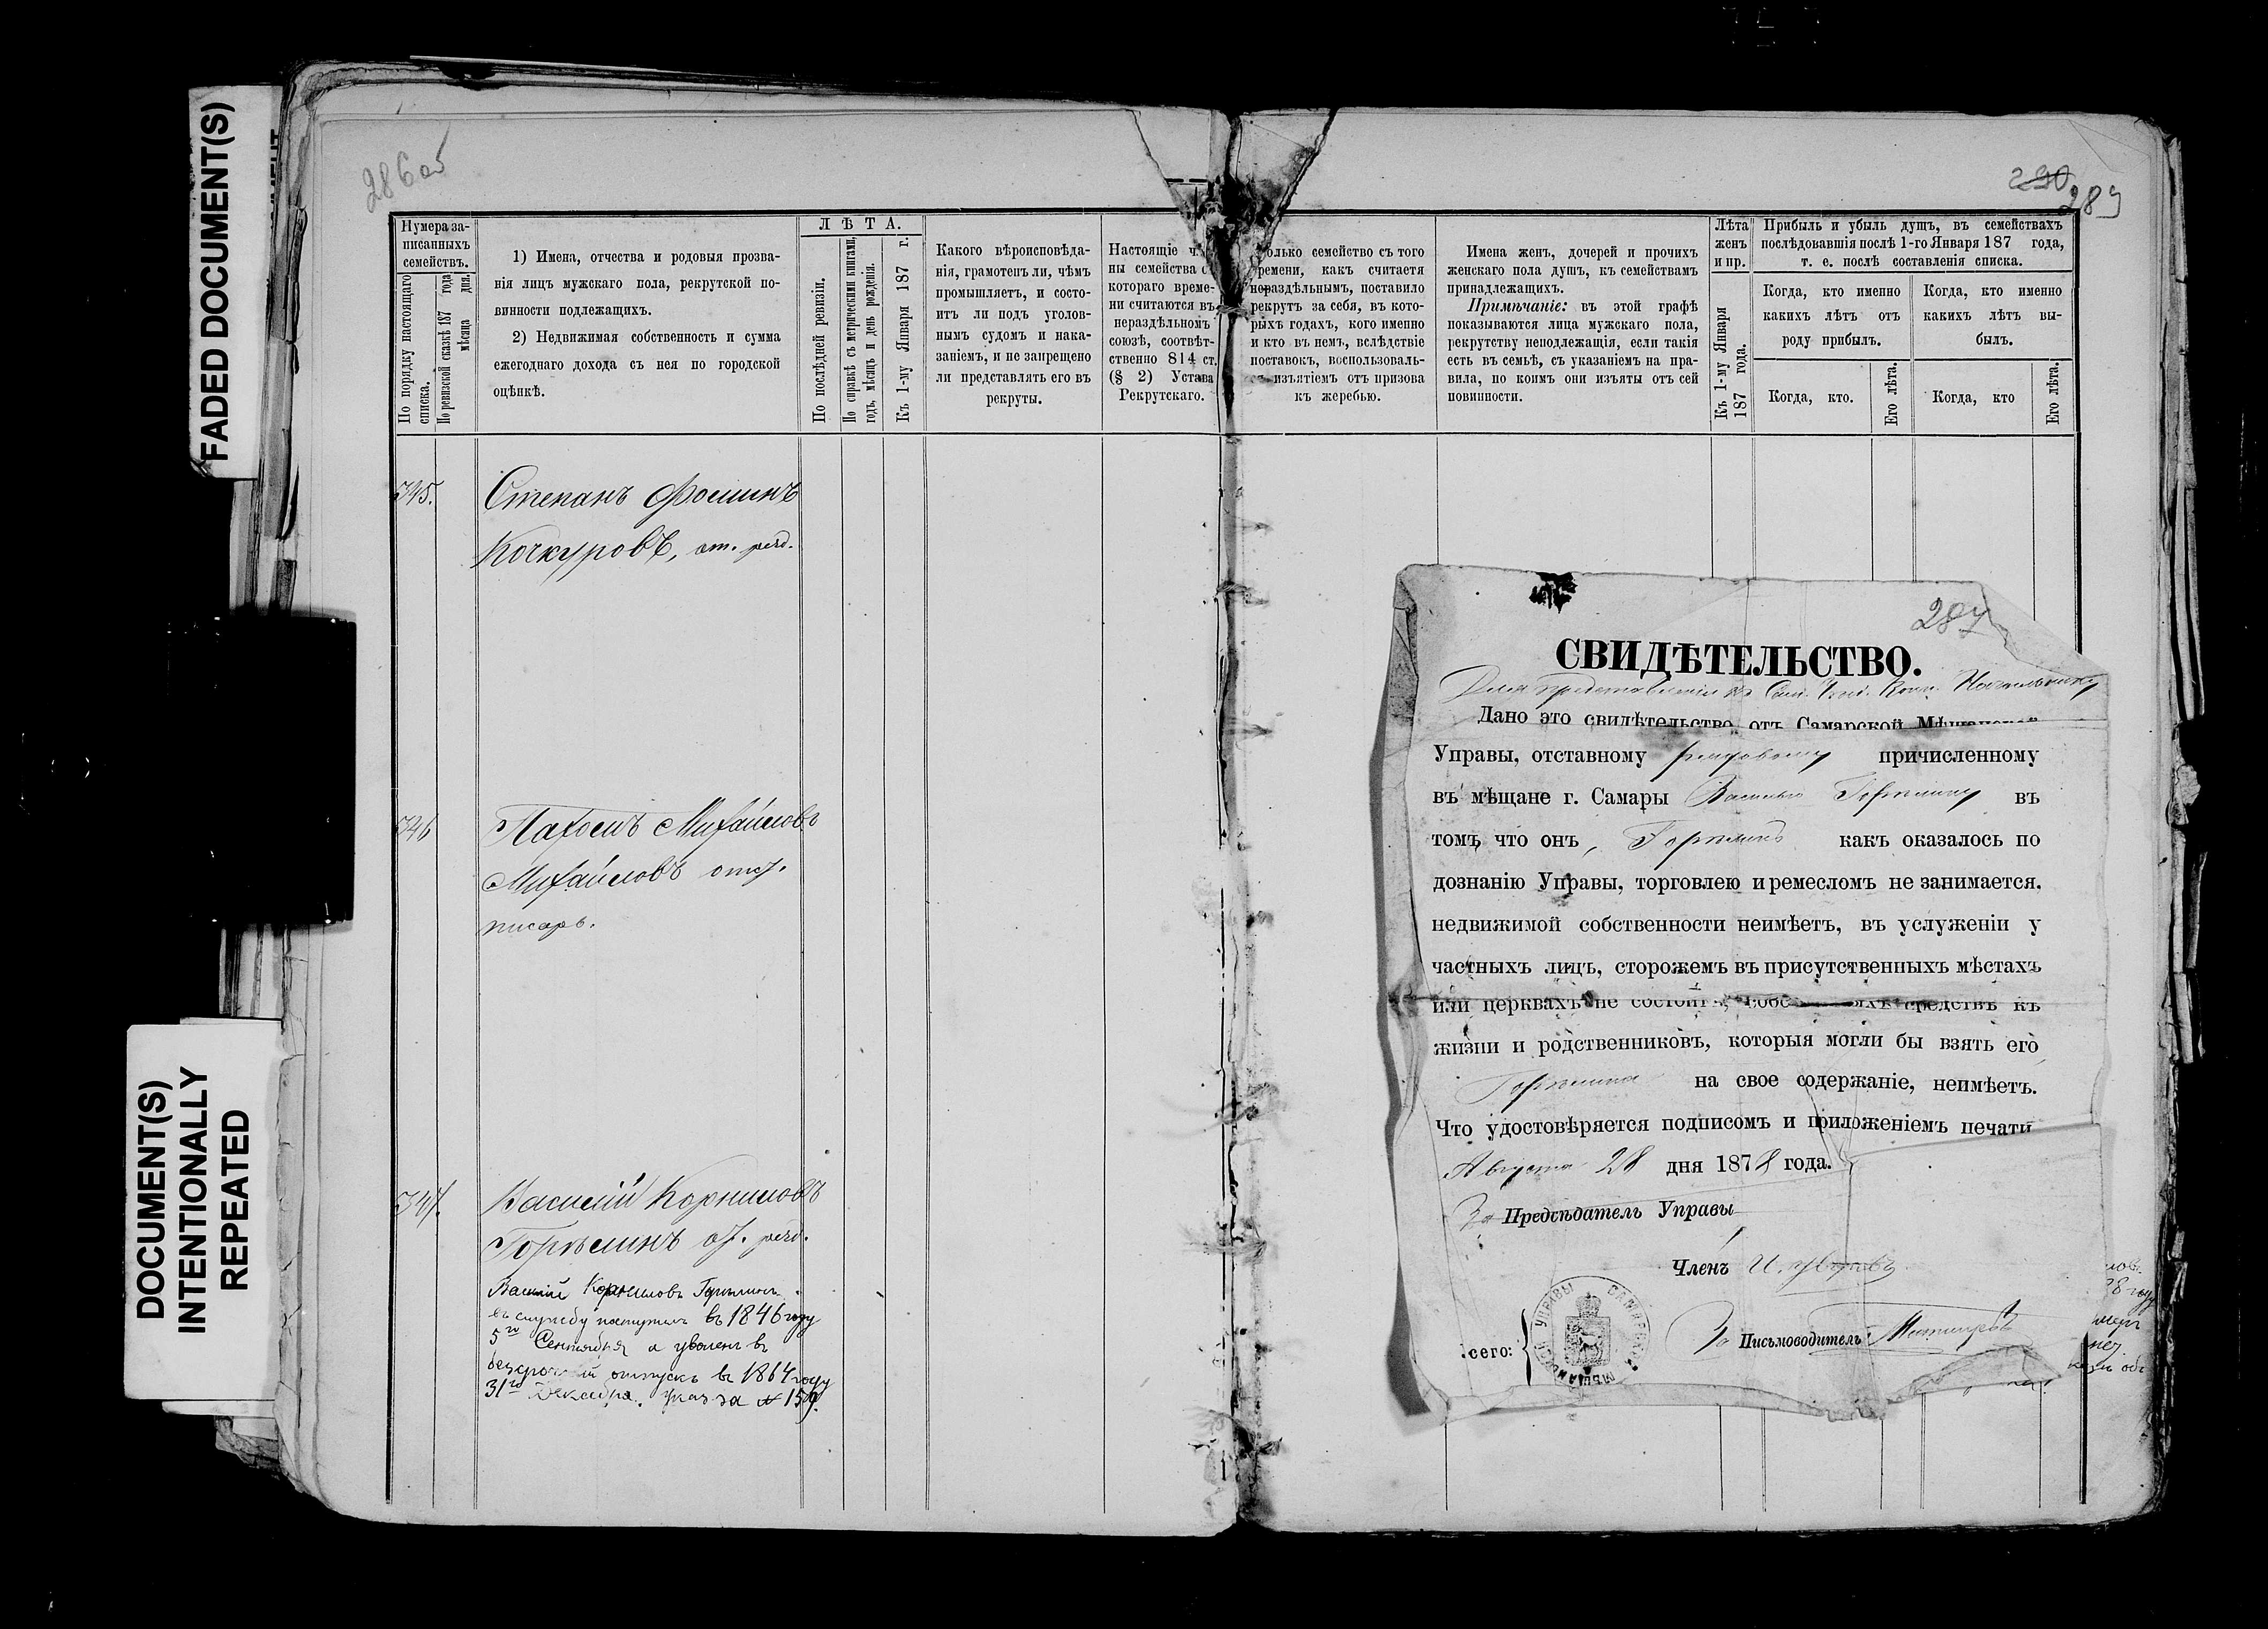 FADED DOCUMENT(S)
DOCUMENT(S)
INTENTIONALLY
REPEATED
286об
Нумера за-
писанныхъ
семействъ.
По порядку настоящаго
списка.
По ревизской сказкѣ 187 года
мѣсяца дня.
1) Имена, отчества и родовыя прозва-
нія лицъ мужскаго пола, рекрутской по-
винности подлежащихъ.
2) Недвижимая собственность и сумма
ежегоднаго дохода съ нея по городской
оцѣнкѣ.
ЛѢТА.
По послѣдней ревизіи.
По справкѣ съ метрическими книгами,
годъ, мѣсяцъ и день рожденія.
Къ 1-му Января 187 г.
Какого вѣроисповѣда-
нія, грамотенъ ли, чѣмъ
промышляетъ, и состо-
итъ ли подъ уголов-
нымъ судомъ и нака-
заніемъ, и не запрещено
ли представлять его въ
рекруты.
Настоящіе
ны семейства с
котораго време-
ни считаются въ
нераздѣльномъ
союзѣ, соотвѣт-
ственно 814 ст.
(§ 2) Устава
Рекрутскаго.
345.
Степанъ Фоминъ
Кочкуровъ, от. ряд.
346
Пахомъ Михайловъ
Михайловъ отст.
писарь.
347.
Василій Корниловъ
Горѣлинъ от. ряд.
Василій Корниловъ Горѣлинъ
въ службу поступилъ въ 1846 году
5го Сентября а уволенъ въ
безсрочный отпускъ въ 1864 году
31го Декабря. указ за № 159.
290
289
олько семейство съ того
ремени, какъ считается
нераздѣльнымъ, поставило
рекрутъ за себя, въ кото-
рыхъ годахъ, кого именно
и кто въ немъ, вслѣдствіе
поставокъ, воспользоваль-
ся изъятіемъ отъ призова
къ жеребью.
Имена женъ, дочерей и прочихъ
женскаго пола душъ, къ семействамъ
принадлежащихъ.
Примѣчаніе: въ этой графѣ
показываются лица мужскаго пола,
рекрутству неподлежащія, если такія
есть въ семьѣ, съ указаніемъ на пра-
вила, по коимъ они изъяты отъ сей
повинности.
Лѣта
женъ
и пр.
Къ 1-му Января
187 года.
Прибыль и убыль душъ, въ семействахъ
послѣдовавшія послѣ 1-го Января 187 года,
т. е. послѣ составленія списка.
Когда, кто именно
какихъ лѣтъ отъ
роду прибылъ.
Когда, кто именно
какихъ лѣтъ вы-
былъ.
Когда, кто.
Его лѣта.
Когда, кто
Его лѣта.
287
СВИДѢТЕЛЬСТВО.
Для представленія къ Начальнику
Дано это свидѣтельство отъ Самарской Мѣщанской
Управы, отставному рядовому причисленному
въ мѣщане г. Самары Василью Горѣлину въ
томъ, что онъ, Горѣлинъ какъ оказалось по
дознанію Управы, торговлею и ремесломъ не занимается.
недвижимой собственности неимѣетъ, въ услуженіи у
частныхъ лицъ, сторожемъ въ присутственныхъ мѣстахъ
или церквахъ не состоитъ, средствъ къ
жизни и родственниковъ, которыя могли бы взять его
Горѣлина на свое содержаніе, неимѣетъ.
Что удостовѣряется подписомъ и приложеніемъ печати
Августа 28 дня 1878 года.
За Предсѣдатель Управы
Членъ
За Письмоводитель
сего: